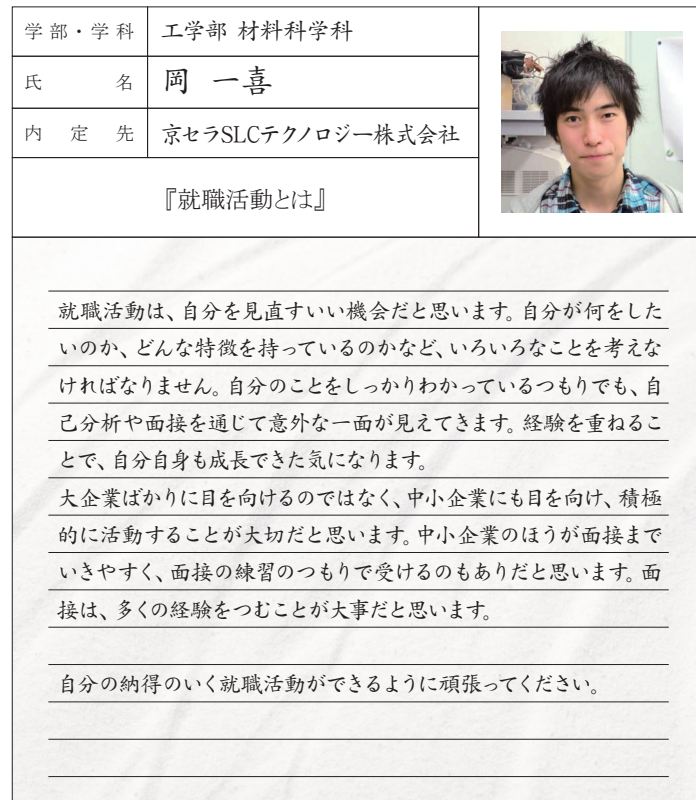 学部・学科 工学部 材料科学科
氏名 岡 一喜
内定先 京セラSLCテクノロジー株式会社
『就職活動とは』
就職活動は、自分を見直すいい機会だと思います。自分が何をした
いのか、どんな特徴を持っているのかなど、いろいろなことを考えな
ければなりません。自分のことをしっかりわかっているつもりでも、自
己分析や面接を通じて意外な一面が見えてきます。経験を重ねるこ
とで、自分自身も成長できた気になります。
大企業ばかりに目を向けるのではなく、中小企業にも目を向け、積極
的に活動することが大切だと思います。中小企業のほうが面接まで
いきやすく、面接の練習のつもりで受けるのもありだと思います。面
接は、多くの経験をつむことが大事だと思います。
自分の納得のいく就職活動ができるように頑張ってください。